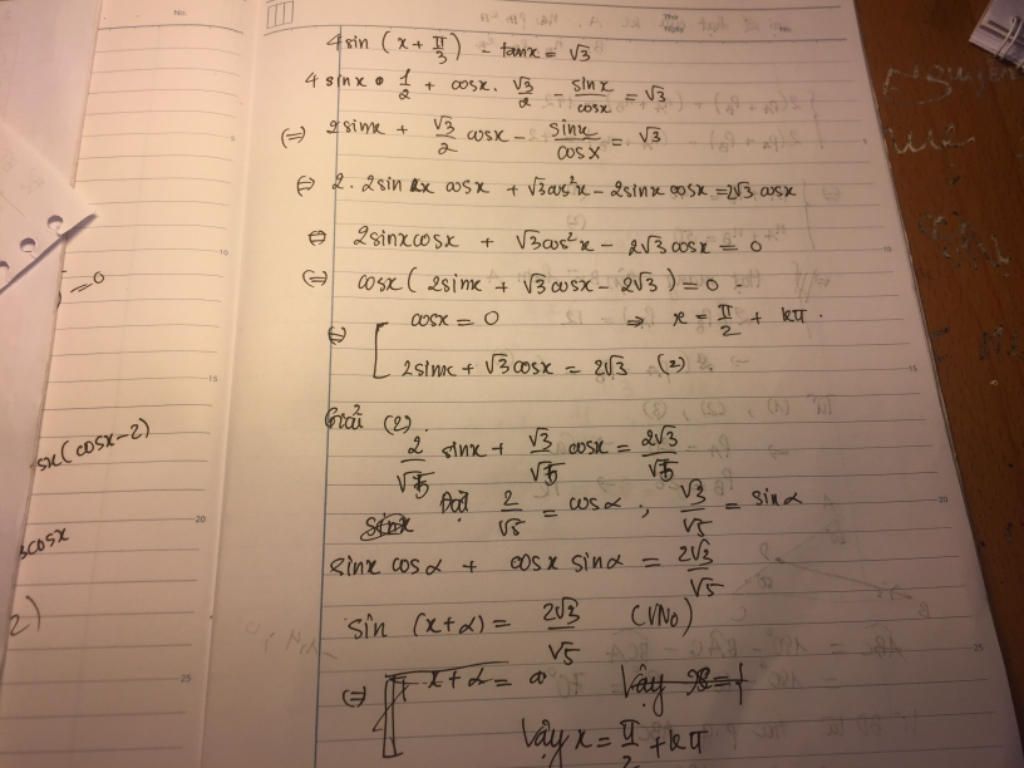 4sin (x + π/3) - tanx = √3
4 sinx . 1/2 + cosx . √3/2 - sinx/cosx = √3
(=) 2sinx + √3/2 cosx - sinx/cosx = √3
⇔ 2. 2sin x cosx + √3cos²x - 2sinx cosx = 2√3 cosx
⇔ 2sinxcosx + √3cos²x - 2√3 cosx = 0
(=) cosx ( 2sinx + √3cosx - 2√3 ) = 0
⇔ [ cosx = 0 ⇒ x = π/2 + kπ.
2sinx + √3cosx = 2√3 (2)
Giải (2).
2/√5 sinx + √3/√5 cosx = 2√3/√5
Đặt 2/√5 = cosα ; √3/√5 = sinα
sinx cosα + cosx sinα = 2√3/√5
sin (x+α) = 2√3/√5 (VNo)
(=) x+α =
Vậy x = π/2 + kπ
= 0
sx(cosx-2)
cosx
2)